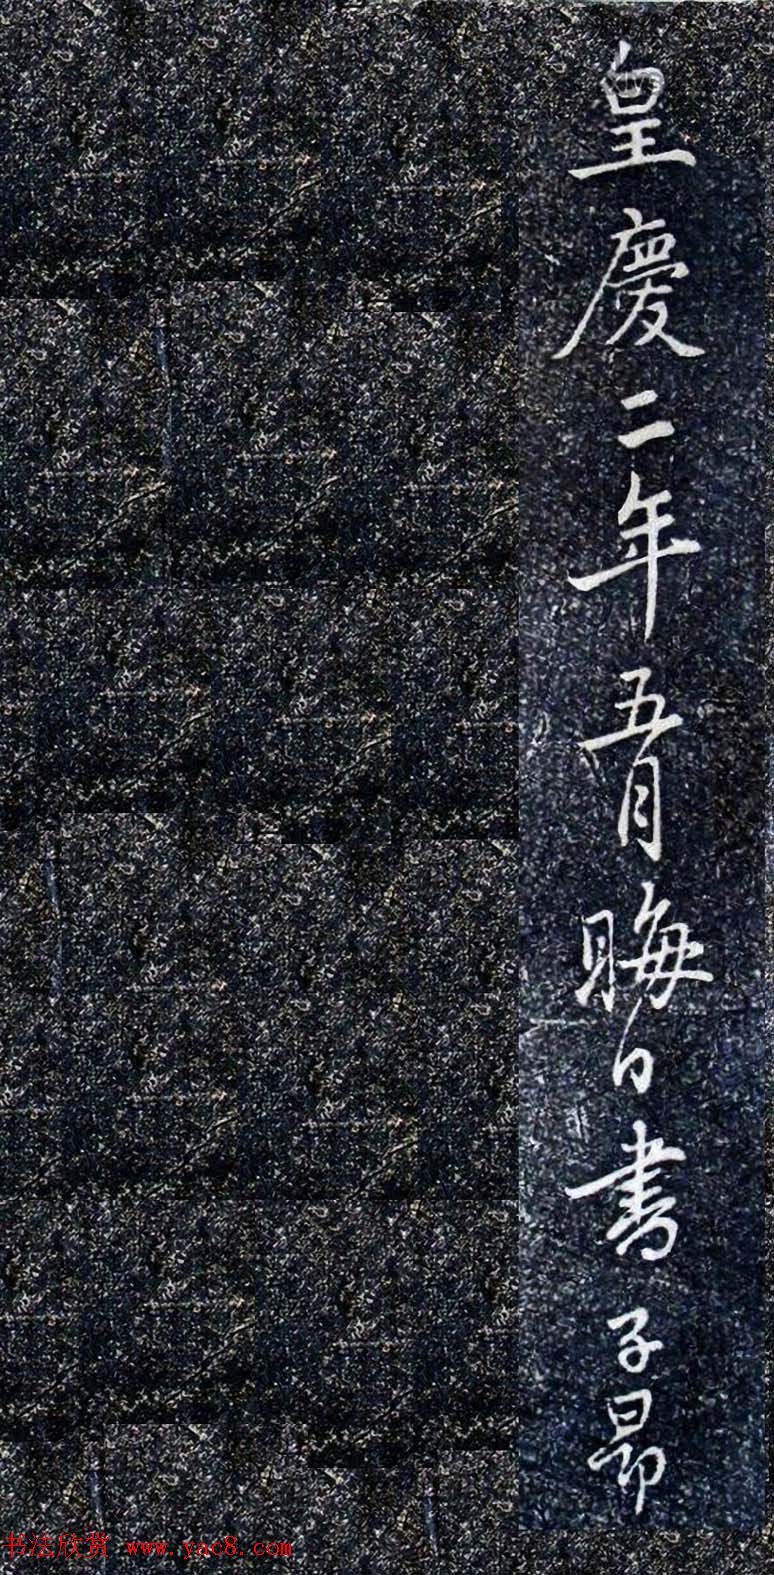 皇慶二年五月晦日書子昂
书法欣赏 www.yac8.com